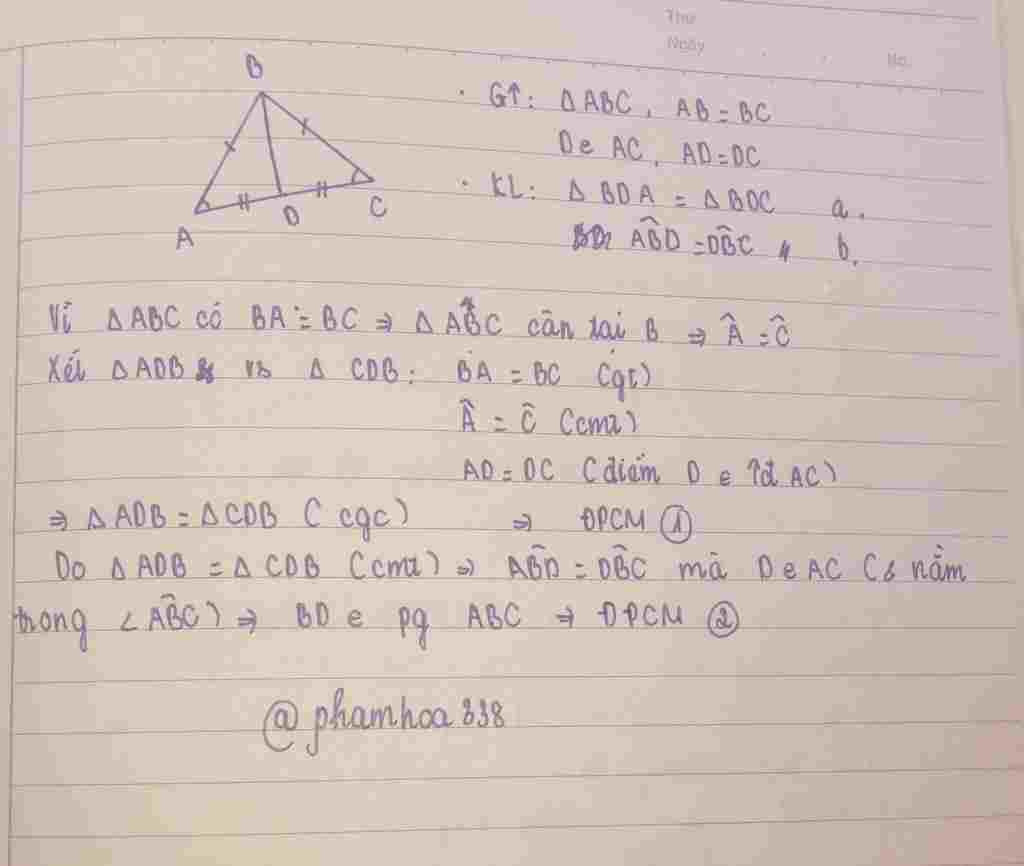 Thứ
Ngày
No.
B
A
D
C
• GT: △ABC, AB = BC
D e AC, AD = DC
• KL: △ BDA = △ BDC a.
AB̂D = DB̂C b.
Vì △ABC có BA = BC => △ ABC cân tai B => Â = Ĉ
Xét △ADB vs △ CDB: BA = BC (gt)
Â = Ĉ (cmt)
AD = DC (điểm D e tđ AC)
=> △ ADB = △CDB (cgc) => ĐPCM ①
Do △ ADB = △ CDB (cmt) => AB̂D = DB̂C mà D e AC ( nằm
trong ∠AB̂C) => BD e pg ABC => ĐPCM ②
@phamhoa338